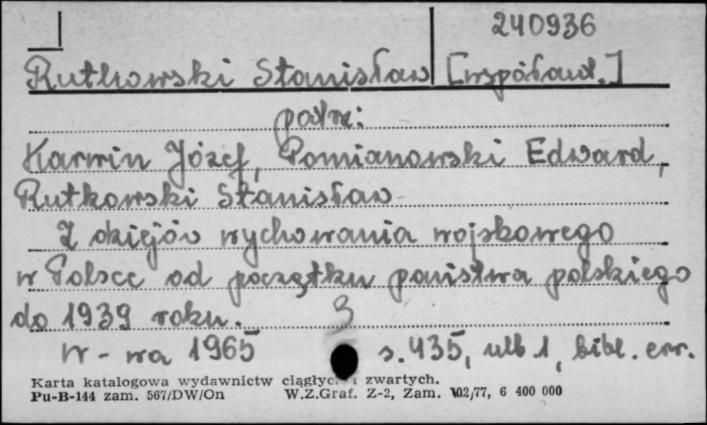 240936
Rutkowski Stanisław [współaut.]
patrz:
Karwin Józef, Pomianowski Edward,
Rutkowski Stanisław
Z dziejów wychowania wojskowego
w Polsce od początku państwa polskiego
do 1939 roku. 3
W-wa 1965 s. 435, ulb 1, bibl. err.
Karta katalogowa wydawnictw ciągłych i zwartych.
Pu-B-144 zam. 567/DW/On W.Z.Graf. Z-2, Zam. 102/77, 6 400 000